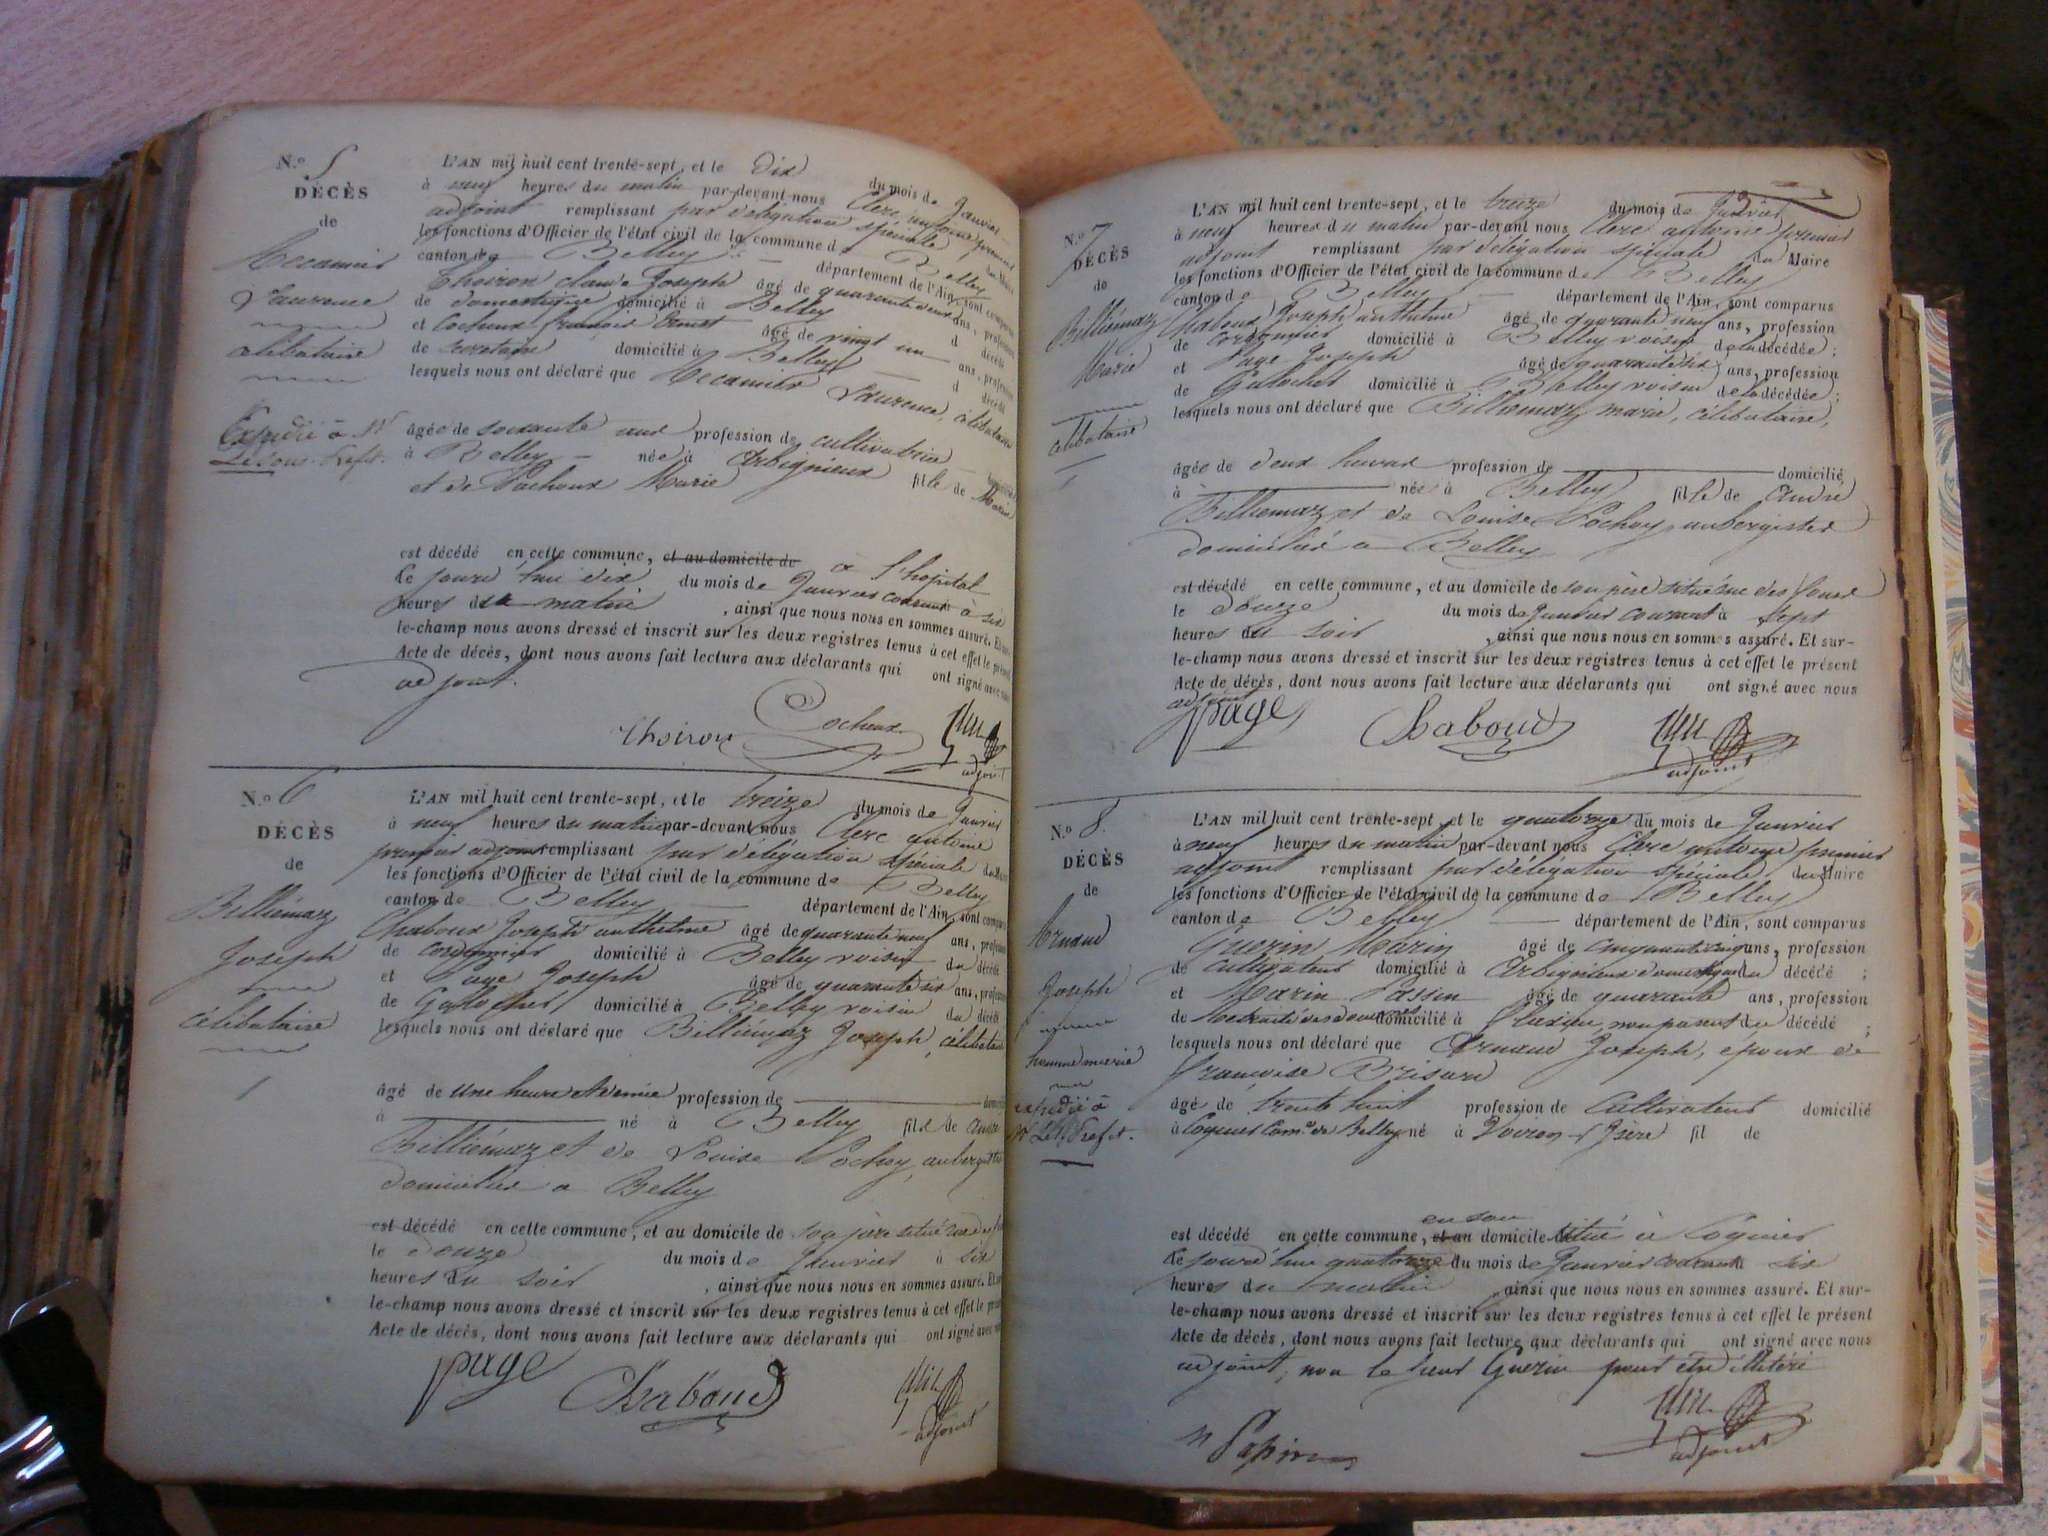 N.º 5
DÉCÈS
de
Laurence
célibataire
Expédié à Mr
Le Sous-Préft.
L'AN mil huit cent trente-sept, et le Dix du mois de Janvier
à neuf heures du matin par-devant-nous Clerc antoine premier
adjoint remplissant par délégation spéciale du Maire
les fonctions d'Officier de l'état civil de la commune de Belley
canton de Belley département de l'Ain, sont comparus
Thoiron claude Joseph âgé de quarante deux ans, profession
de domestique domicilié à Belley d décédé
et Cocheux françois Ernest âgé de vingt un ans, profession
de secrétaire domicilié à Belley d décédé
lesquels nous ont déclaré que Laurence, célibataire
âgée de soixante profession de cultivatrice
à Belley née à Arbignieux fille de
et de Pachoux Marie
est décédé en cette commune, et au domicile de à l'hopital
Le jourd'hui dix du mois de Janvier courant à six
heures du matin , ainsi que nous nous en sommes assuré. Et sur-
le-champ nous avons dressé et inscrit sur les deux registres tenus à cet effet le présent
Acte de décès, dont nous avons fait lecture aux déclarants qui ont signé avec nous
adjoint.
Thoiron Cocheux Clerc
adjoint
N.º 6
DÉCÈS
de
Billiémaz
Joseph
célibataire
L'AN mil huit cent trente-sept, et le treize du mois de Janvier
à neuf heures du matin par-devant nous Clerc antoine
premier adjoint remplissant par délégation spéciale du Maire
les fonctions d'Officier de l'état civil de la commune de Belley
canton de Belley département de l'Ain, sont comparus
Chaboud Joseph anthelme âgé de quarante neuf ans, profession
de cordonnier domicilié à Belley voisin du décédé
et Page Joseph âgé de quarante six ans, profession
de Galochier domicilié à Belley voisin du décédé
lesquels nous ont déclaré que Billiémaz Joseph, célibataire
âgé de une heure et demie profession de domicilié
à né à Belley fils de André
Billiémaz et de Louise Pochoy, aubergistes
domiciliés à Belley
est décédé en cette commune, et au domicile de son père situé rue des
le douze du mois de Janvier à six
heures du soir , ainsi que nous nous en sommes assuré. Et sur-
le-champ nous avons dressé et inscrit sur les deux registres tenus à cet effet le présent
Acte de décès, dont nous avons fait lecture aux déclarants qui ont signé avec nous
page Chaboud Clerc
adjoint
N.º 7
DÉCÈS
de
Billiémaz
Marie
célibataire
L'AN mil huit cent trente-sept, et le treize du mois de Janvier
à neuf heures du matin par-devant nous Clerc antoine premier
adjoint remplissant par délégation spéciale du Maire
les fonctions d'Officier de l'état civil de la commune de Belley
canton de Belley département de l'Ain, sont comparus
Chaboud Joseph anthelme âgé de quarante neuf ans, profession
de cordonnier domicilié à Belley voisin de la décédée ;
et Page Joseph âgé de quarante six ans, profession
de Galochier domicilié à Belley voisin de la décédée ;
lesquels nous ont déclaré que Billiemaz marie, célibataire,
âgée de deux heures profession de domicilié
à née à Belley fille de André
Billiemaz et de Louise Pochoy, aubergistes
domiciliés à Belley
est décédé en cette commune, et au domicile de son père situé rue des
le douze du mois de Janvier courant à sept
heures du soir , ainsi que nous nous en sommes assuré. Et sur-
le-champ nous avons dressé et inscrit sur les deux registres tenus à cet effet le présent
Acte de décès, dont nous avons fait lecture aux déclarants qui ont signé avec nous
adjoint
page Chaboud Clerc
adjoint
N.º 8
DÉCÈS
de
Arnaud
Joseph
homme marié
expédié à
Mr Le S. Préft.
L'AN mil huit cent trente-sept, et le quatorze du mois de Janvier
à neuf heures du matin par-devant nous Clerc antoine premier
adjoint remplissant par délégation spéciale du Maire
les fonctions d'Officier de l'état civil de la commune de Belley
canton de Belley département de l'Ain, sont comparus
Guerin Marin âgé de cinquante cinq ans, profession
de cultivateur domicilié à Arbignieux domestique du décédé ;
et Marin âgé de quarante ans, profession
de Retraité des douanes domicilié à non parent du décédé ;
lesquels nous ont déclaré que Arnaud Joseph, époux de
françoise Brisard
âgé de trente huit profession de Cultivateur domicilié
à Coguier Comne de Belley né à Voiron Isère fil de
est décédé en cette commune, et au en son domicile situé à Coguier
Le jourd'hui quatorze du mois de Janvier courant à six
heures du matin , ainsi que nous nous en sommes assuré. Et sur-
le-champ nous avons dressé et inscrit sur les deux registres tenus à cet effet le présent
Acte de décès, dont nous avons fait lecture aux déclarants qui ont signé avec nous
adjoint, non le sieur Guerin pour être illétéré
Clerc
adjoint